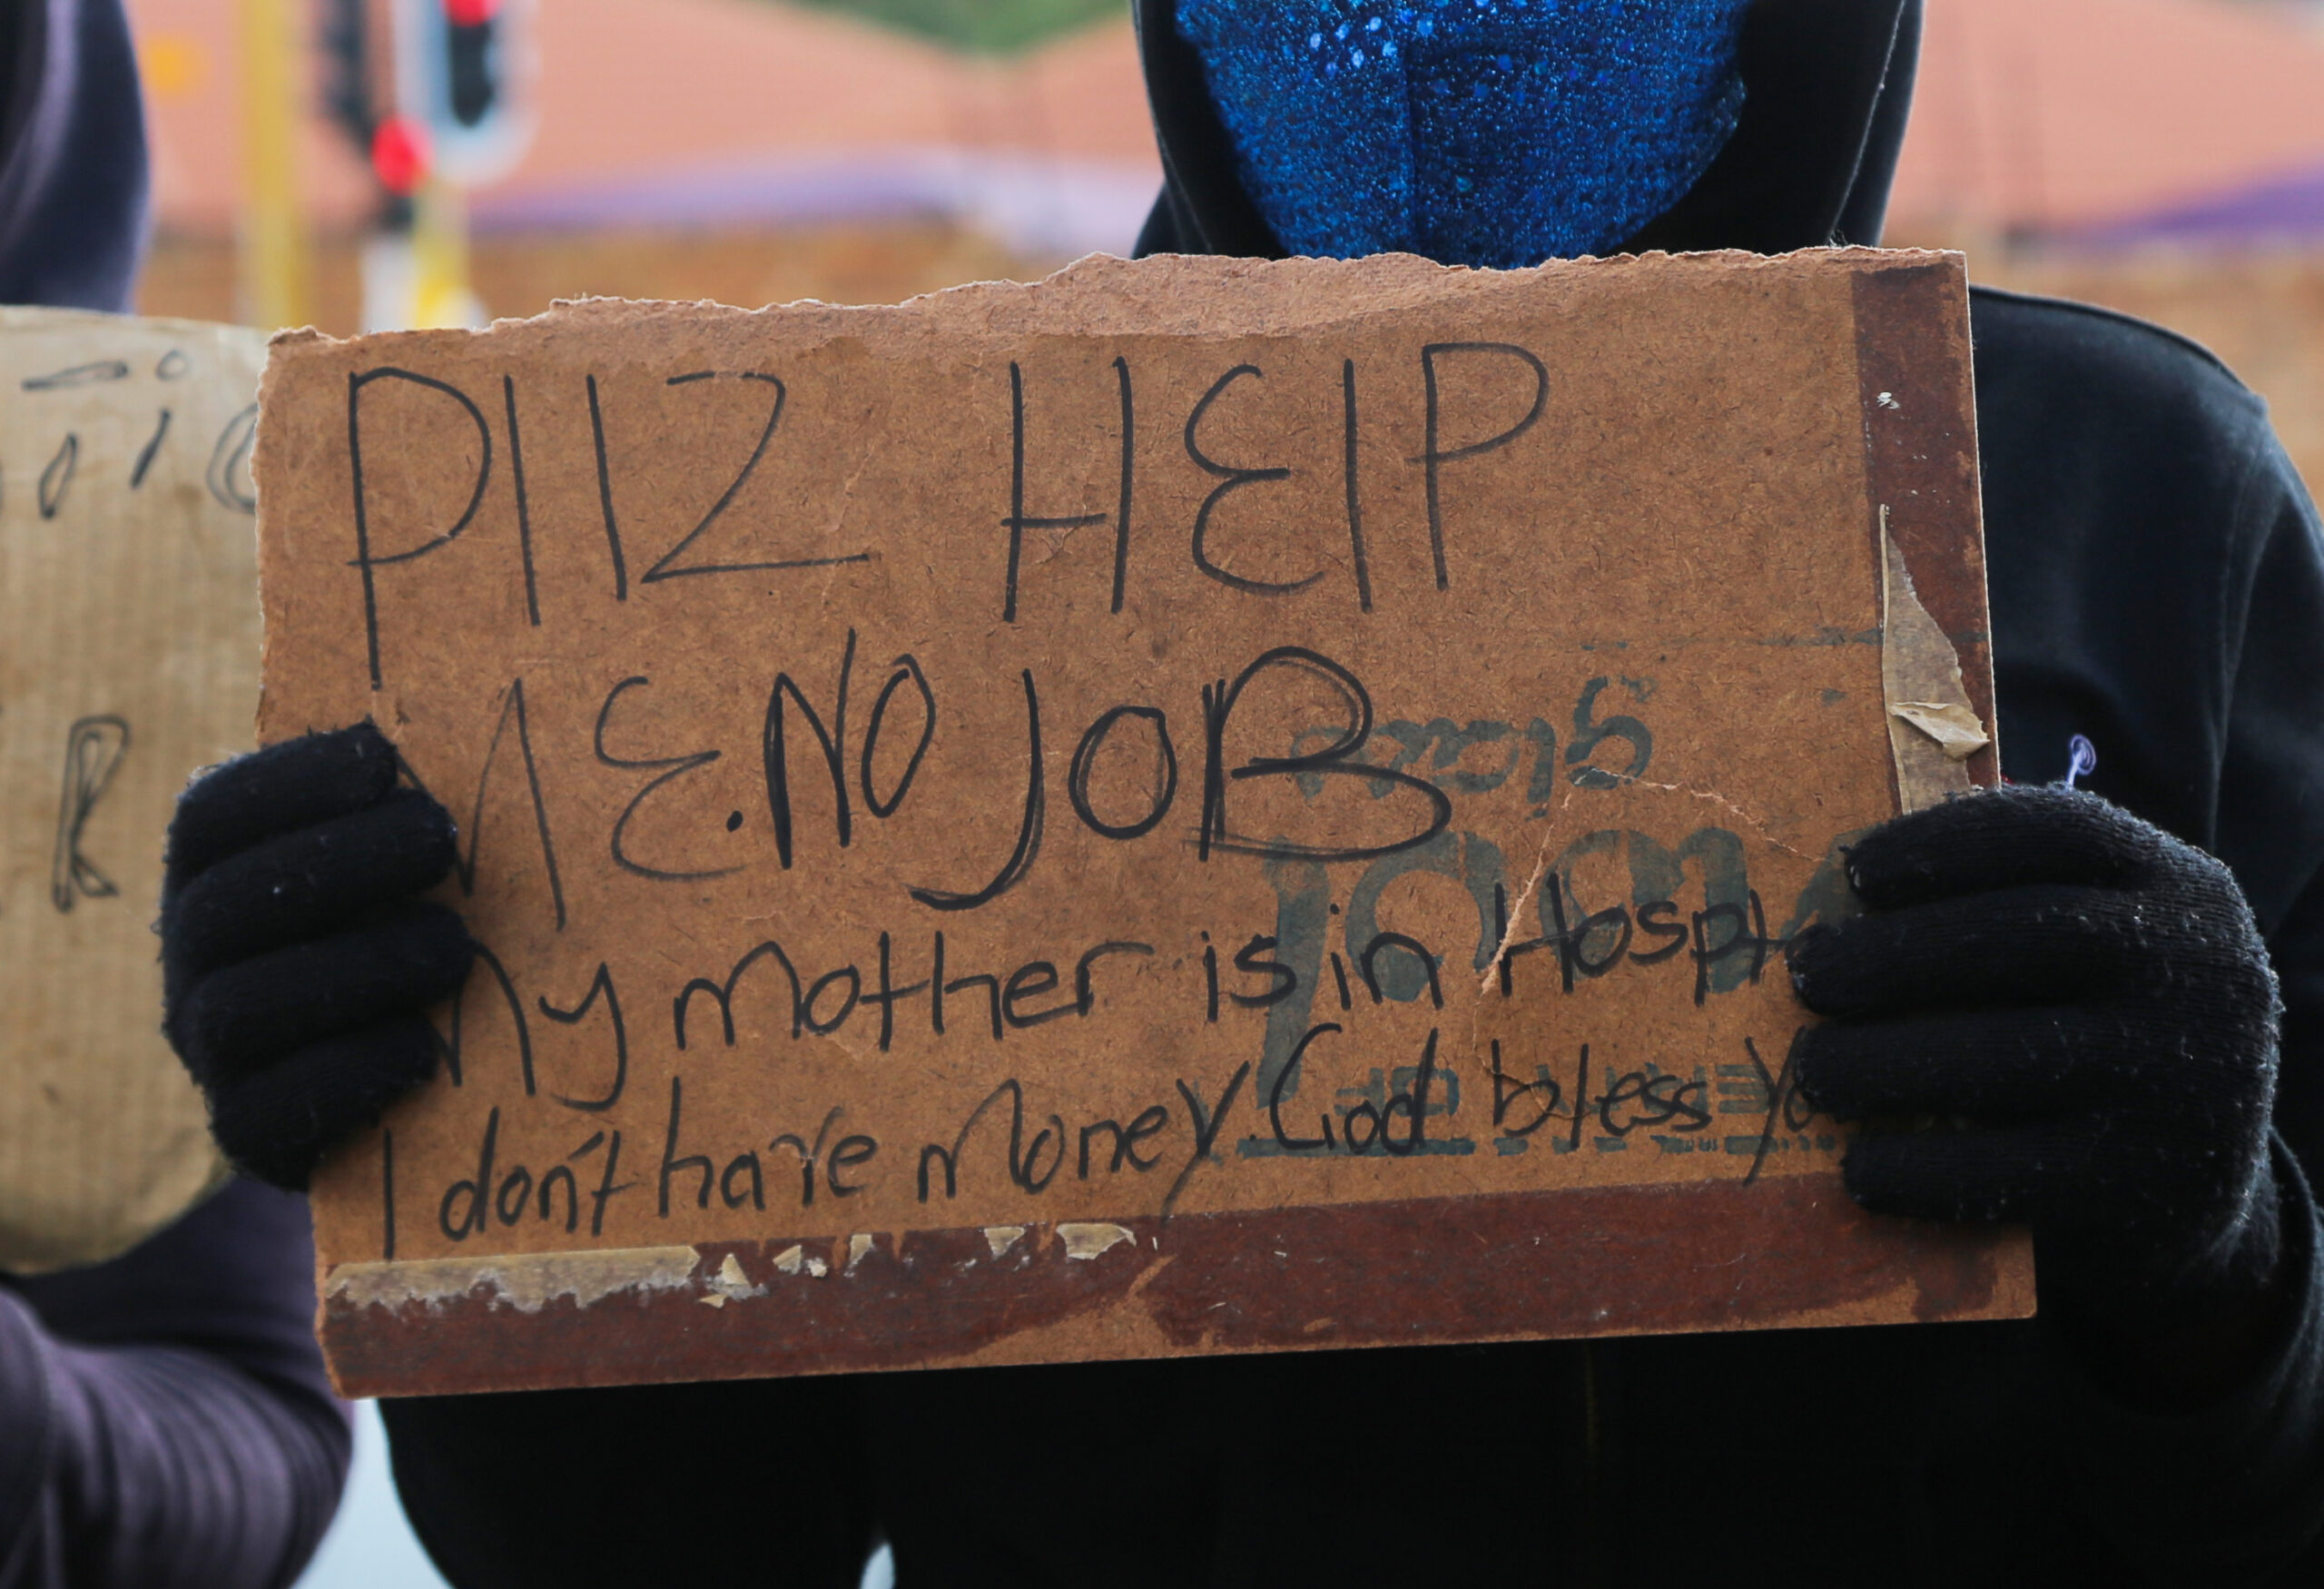 PllZ HElP
ME. NO JOB
My mother is in Hospi
I don't have money. God bless yo
R